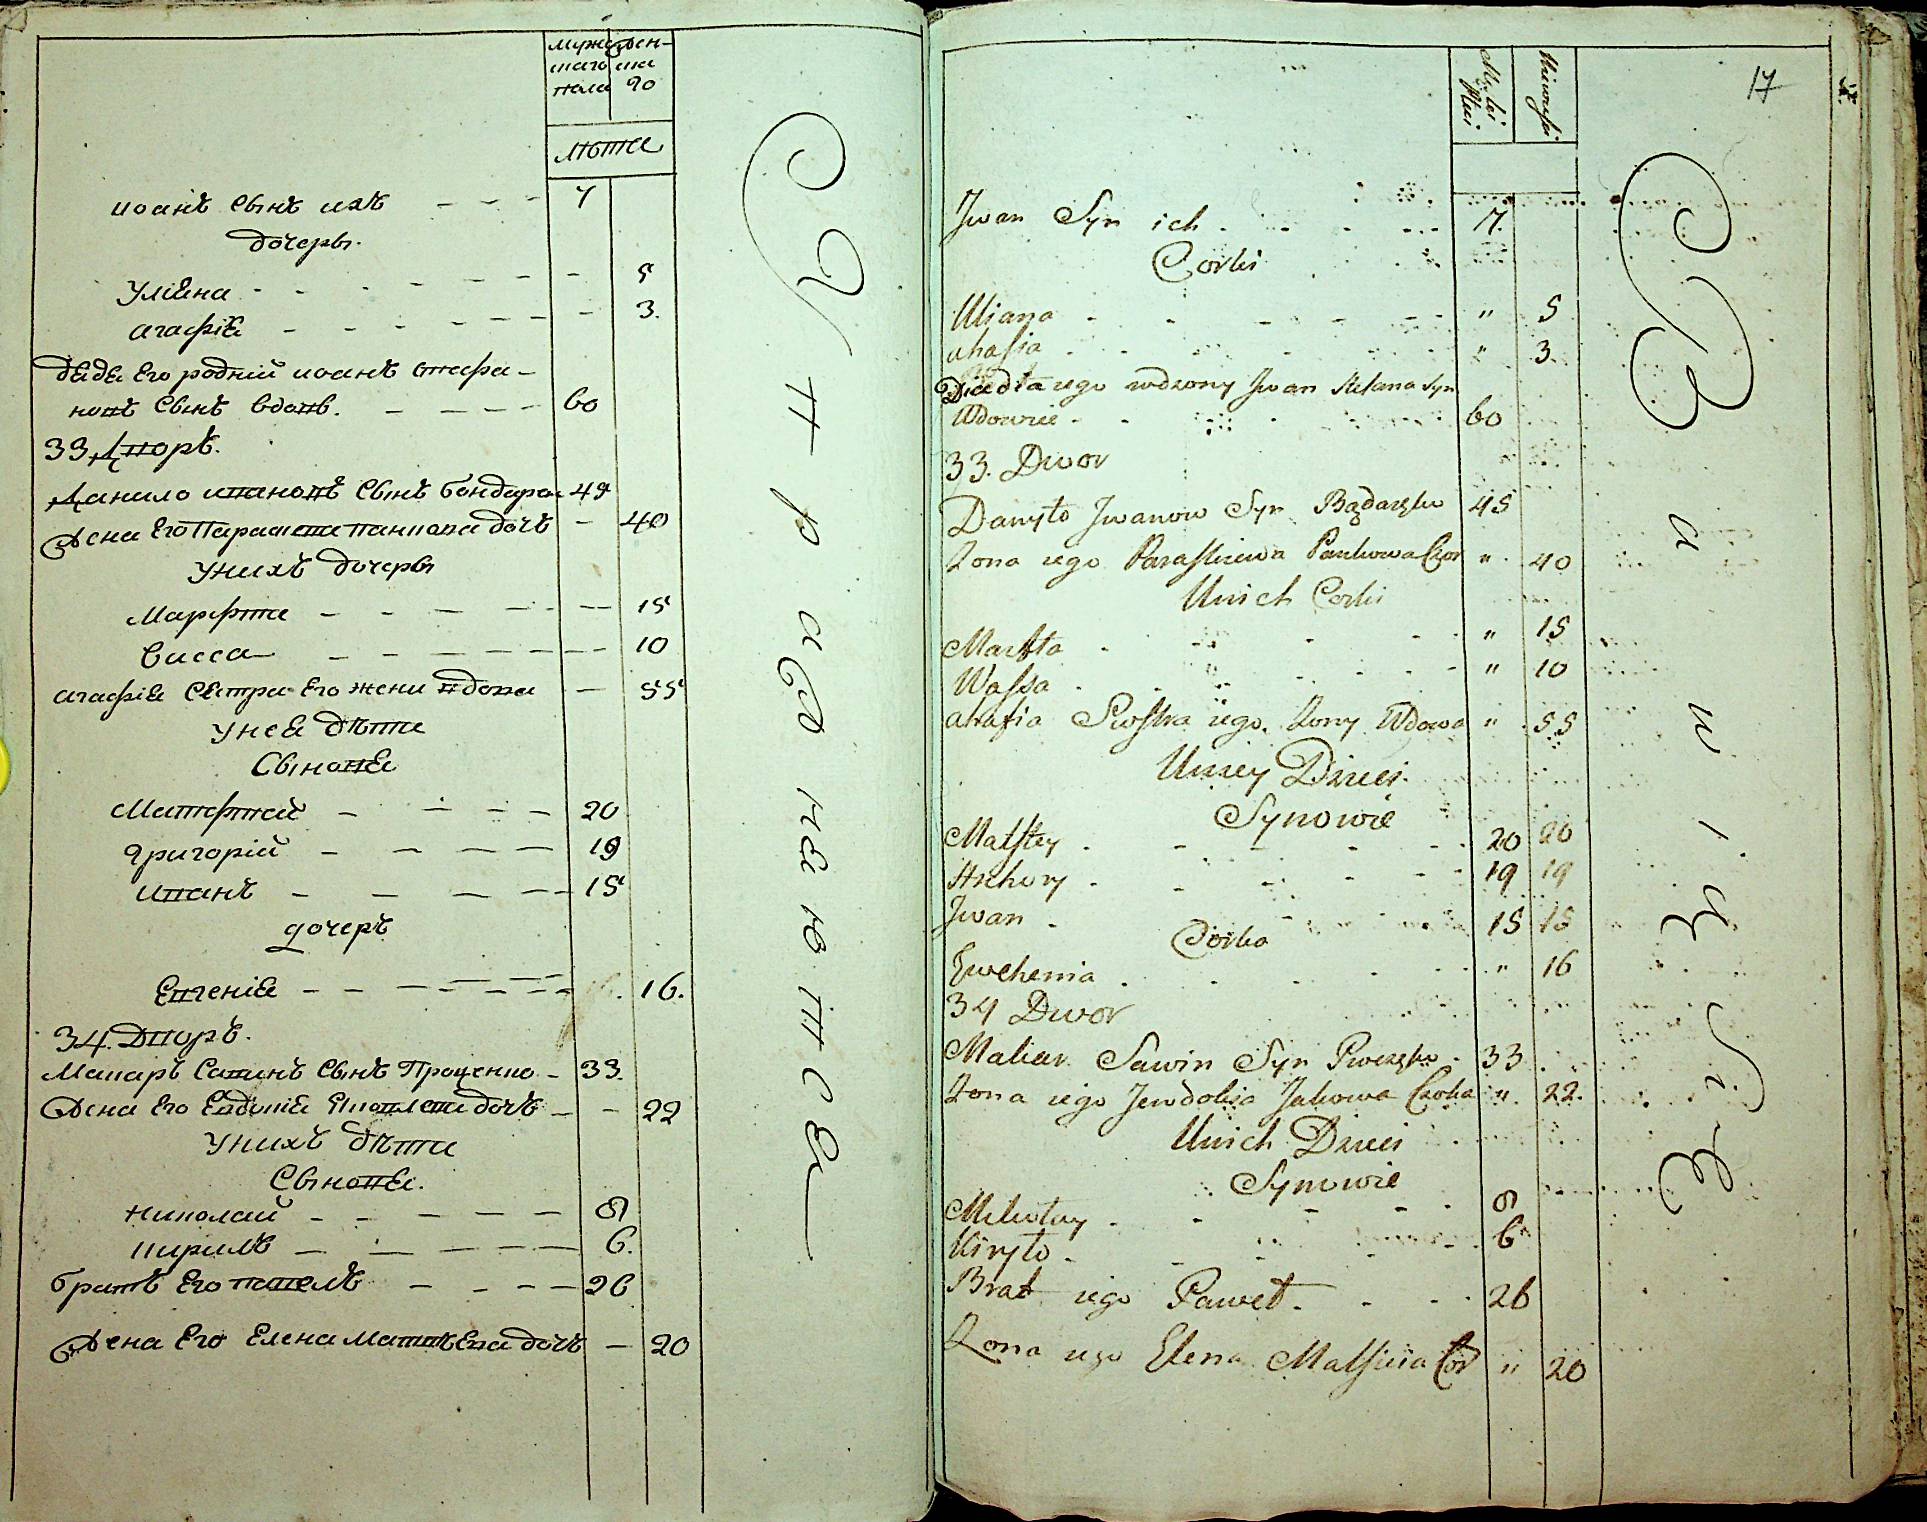 мужескаго пола
женскаго
лѣта
иоанъ сынъ ихъ - - - 7
дочеры
улiяна - - - 5
агафiя - - - 3.
дядя его родній иоанъ стефа-
новъ сынъ вдовъ. - - - 60
33 Дворъ.
Данило ивановъ сынъ бондарен 45
жена его Параскева панкова дочъ - 40
у нихъ дочеры
Марфта - - - 15
Васса - - - 10
агафiя сестра его жени вдова - 55
у нея дѣти
Сыновя
Матфтей - - - 20
григорій - - - 19
иванъ - - - 15
дочеръ
Евгенiя - - - 16.
34. Дворъ.
Макаръ Савинъ сынъ Проценко - 33.
жена его Евдокiя Яковлева дочъ - - 22
у нихъ дѣти
Сыновя.
николай - - - 8
кирилъ - - - 6.
братъ его павелъ - - - 26
жена его Елена Матвѣева дочъ - 20
направляюшсе
17
Męskei Płci
Niewiescei
Jwan Syn ich - - - 7.
Corki
Uliana - - - " 5
ahafia - - - " 3
Diedta iego rodzony Jwan Stefana Syn
Wdowiec - - - 60
33. Dwor
Danyło Jwanow Syn Bądaręko 45
Zona iego Paraskiewa Pankowa Cor " 40
U nich Corki
Marfta " 15
Wassa " 10
ahafia Siostra iego Zony Wdowa " 55
U niey Dzieci
Synowie
Matftey - - - 20 20
Hrehory - - - 19 19
Jwan - - - 15 15
Corka
Ewehenia - - - " 16
34 Dwor
Makar Sawin Syn 33
Zona iego Jewdokia Jakowa Corka " 22.
U nich Dzieci
Synowie
Mikołay - - - 8
Kiryło - - - 6
Brat iego Paweł - - - 26
Zona iego Elena Matfieia Cor " 20